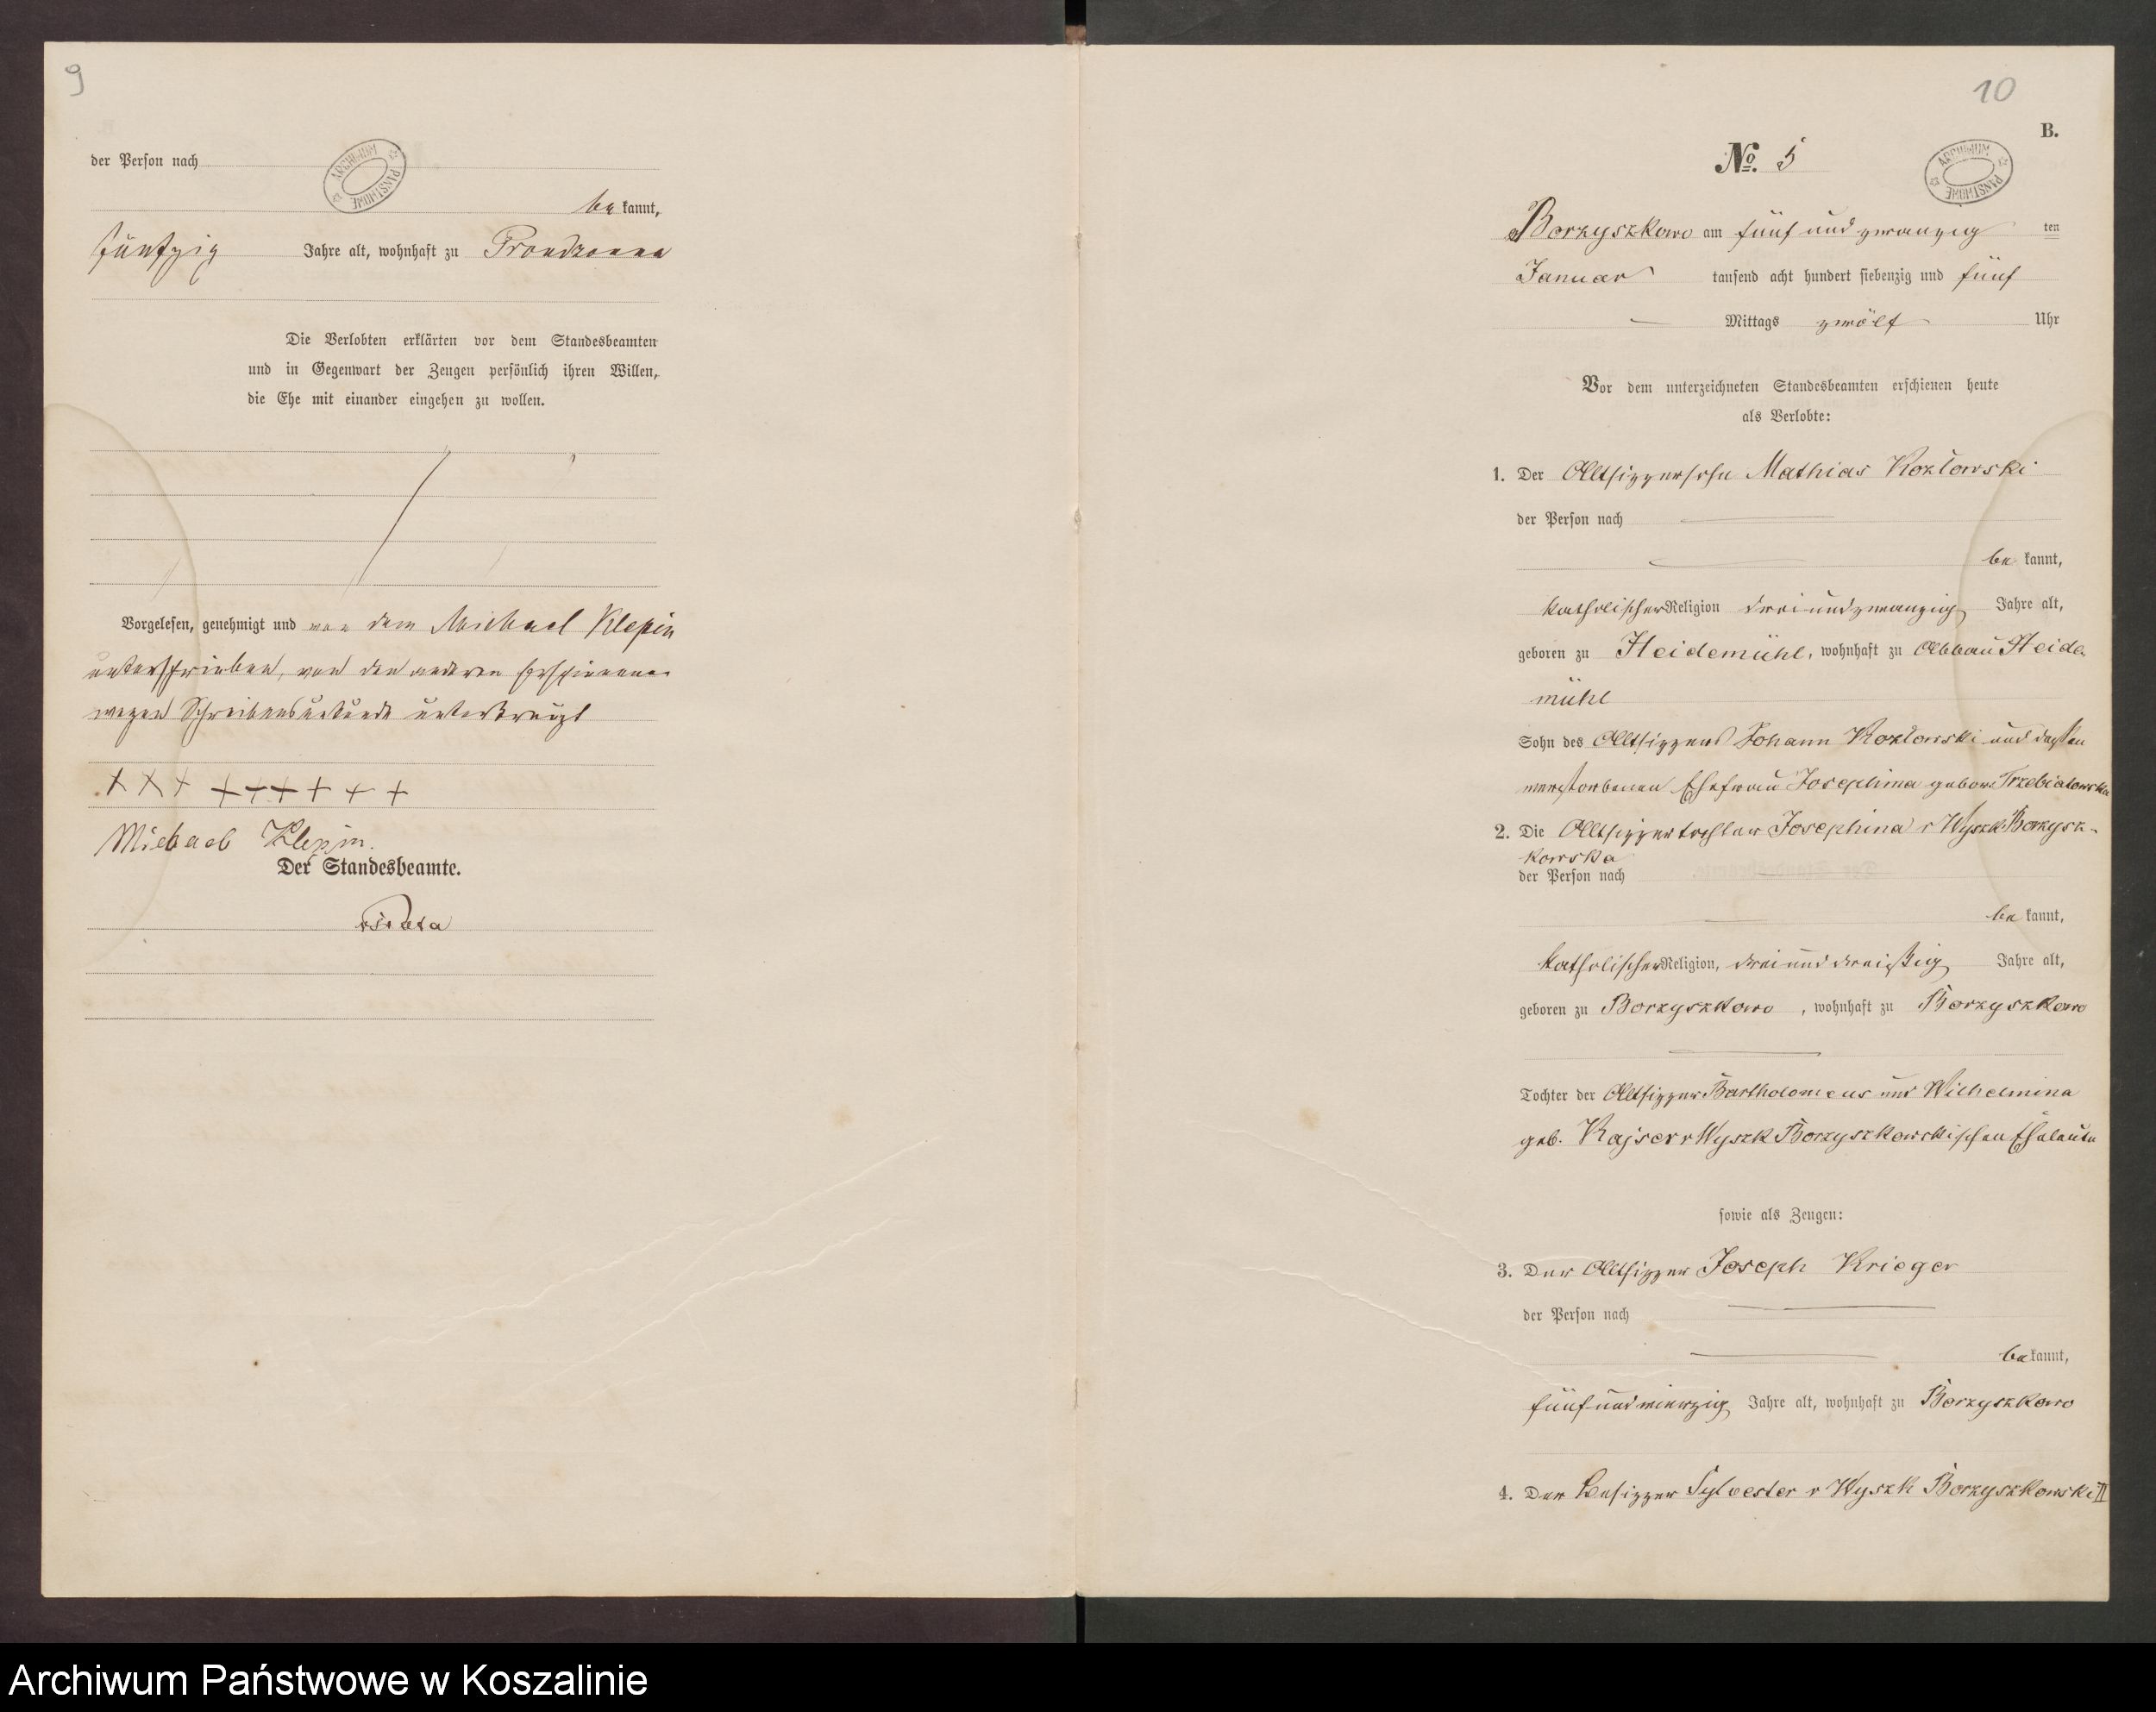 9
der Person nach
ARCHIWUM PAŃSTWOWE
be kannt,
fünfzig Jahre alt, wohnhaft zu Prondzonna
Die Verlobten erklärten vor dem Standesbeamten
und in Gegenwart der Zeugen persönlich ihren Willen,
die Ehe mit einander eingehen zu wollen.
Vorgelesen, genehmigt und von dem Michael Klepin
unterschrieben, von den anderen Erschienenen
wegen Schreibensunkunde unterkreuzt
+ + + + + + + + +
Michael Klepin.
Der Standesbeamte.
10
B.
No. 5
ARCHIWUM PAŃSTWOWE
Borzyszkowo am fünf und zwanzig ten
Januar tausend acht hundert siebenzig und fünf
— Mittags zwölf Uhr
Vor dem unterzeichneten Standesbeamten erschienen heute
als Verlobte:
1. Der Altsitzersohn Mathias Kozłowski
der Person nach
be kannt,
katholischer Religion dreiundzwanzig Jahre alt,
geboren zu Heidemühl, wohnhaft zu Abbau Heide
mühl
Sohn des Altsitzers Johann Kozłowski und dessen
verstorbenen Ehefrau Josephina geborn Trzebiatowska
2. Die Altsitzertochter Josephina v Wyszk Borzysz-
kowska
der Person nach
be kannt,
katholischer Religion, dreiunddreißig Jahre alt,
geboren zu Borzyszkowo, wohnhaft zu Borzyszkowo
Tochter der Altsitzer Bartholomeus und Wilhelmina
geb. Kajser v Wyszk Borzyszkowskischen Eheleute
sowie als Zeugen:
3. Der Altsitzer Joseph Krieger
der Person nach
be kannt,
fünfundvierzig Jahre alt, wohnhaft zu Borzyszkowo
4. Der Besitzer Sylvester v Wyszk Borzyszkowski II
Archiwum Państwowe w Koszalinie